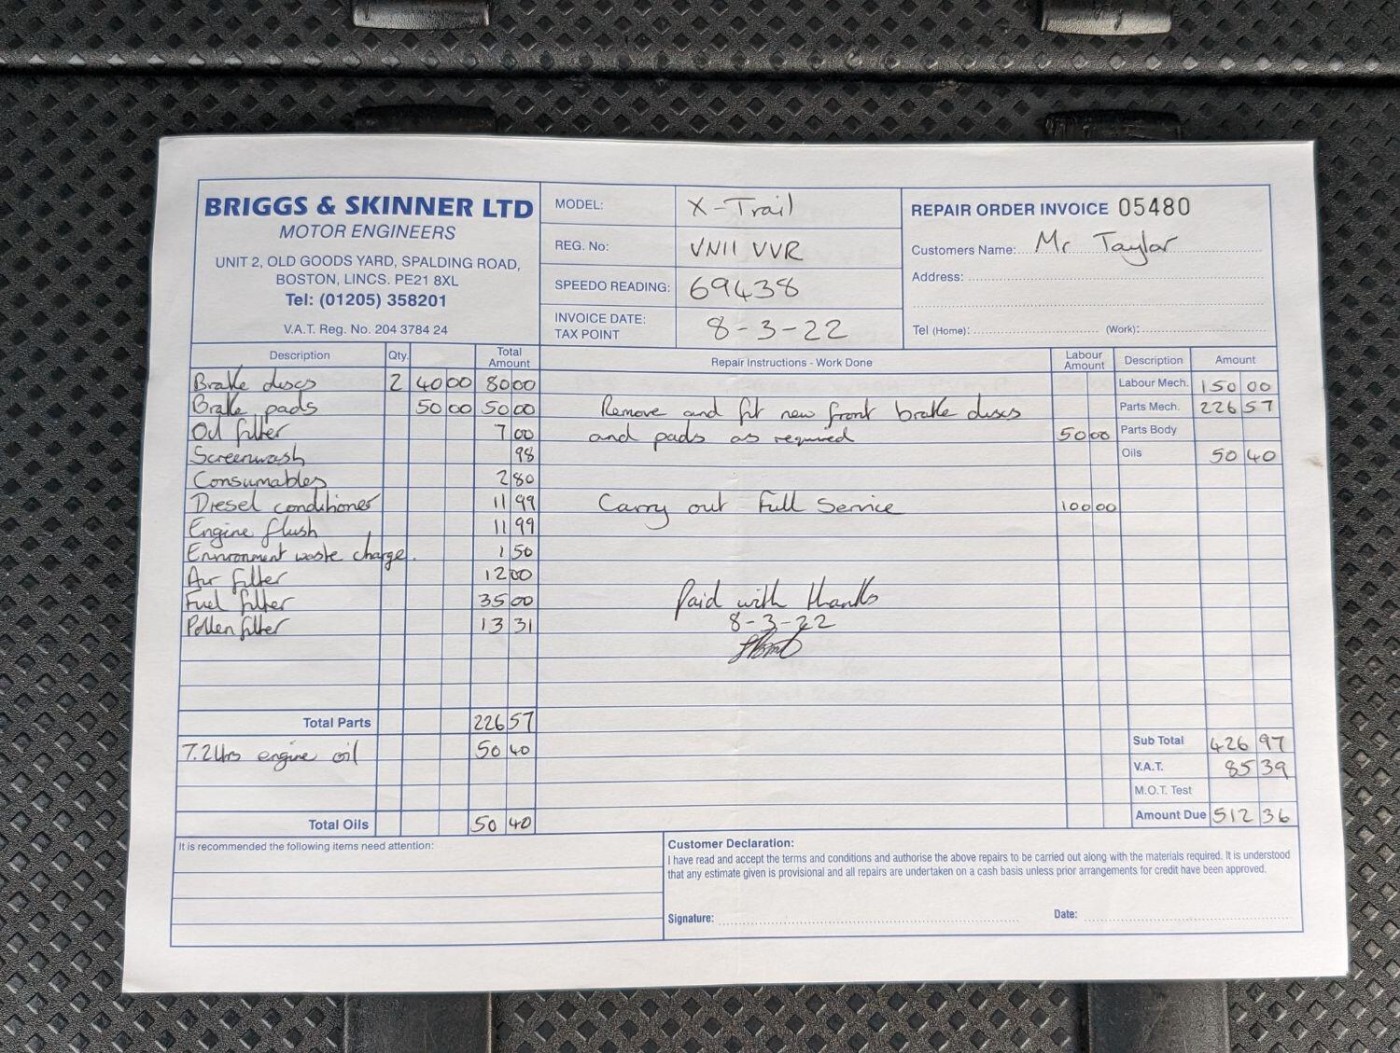 BRIGGS & SKINNER LTD
MOTOR ENGINEERS
UNIT 2, OLD GOODS YARD, SPALDING ROAD,
BOSTON, LINCS. PE21 8XL
Tel: (01205) 358201
V.A.T. Reg. No. 204 3784 24
MODEL: X-Trail
REG. No: VN11 VVR
SPEEDO READING: 69438
INVOICE DATE:
TAX POINT 8-3-22
REPAIR ORDER INVOICE 05480
Customers Name: Mr Taylor
Address:
Tel (Home): (Work):
Description Qty. Total Amount
Brake discs 2 40 00 80 00
Brake pads 50 00 50 00
Oil filter 7 00
Screenwash 98
Consumables 2 80
Diesel conditioner 11 99
Engine flush 11 99
Environment waste charge. 1 50
Air filter 12 00
Fuel filter 35 00
Pollen filter 13 31
Total Parts 226 57
7.2ltrs engine oil 50 40
Total Oils 50 40
Repair Instructions - Work Done Labour Amount
Remove and fit new front brake discs
and pads as required 50 00
Carry out Full Service 100 00
Paid with thanks
8-3-22
Description Amount
Labour Mech. 150 00
Parts Mech. 226 57
Parts Body
Oils 50 40
Sub Total 426 97
V.A.T. 85 39
M.O.T. Test
Amount Due 512 36
It is recommended the following items need attention:
Customer Declaration:
I have read and accept the terms and conditions and authorise the above repairs to be carried out along with the materials required. It is understood
that any estimate given is provisional and all repairs are undertaken on a cash basis unless prior arrangements for credit have been approved.
Signature: Date: